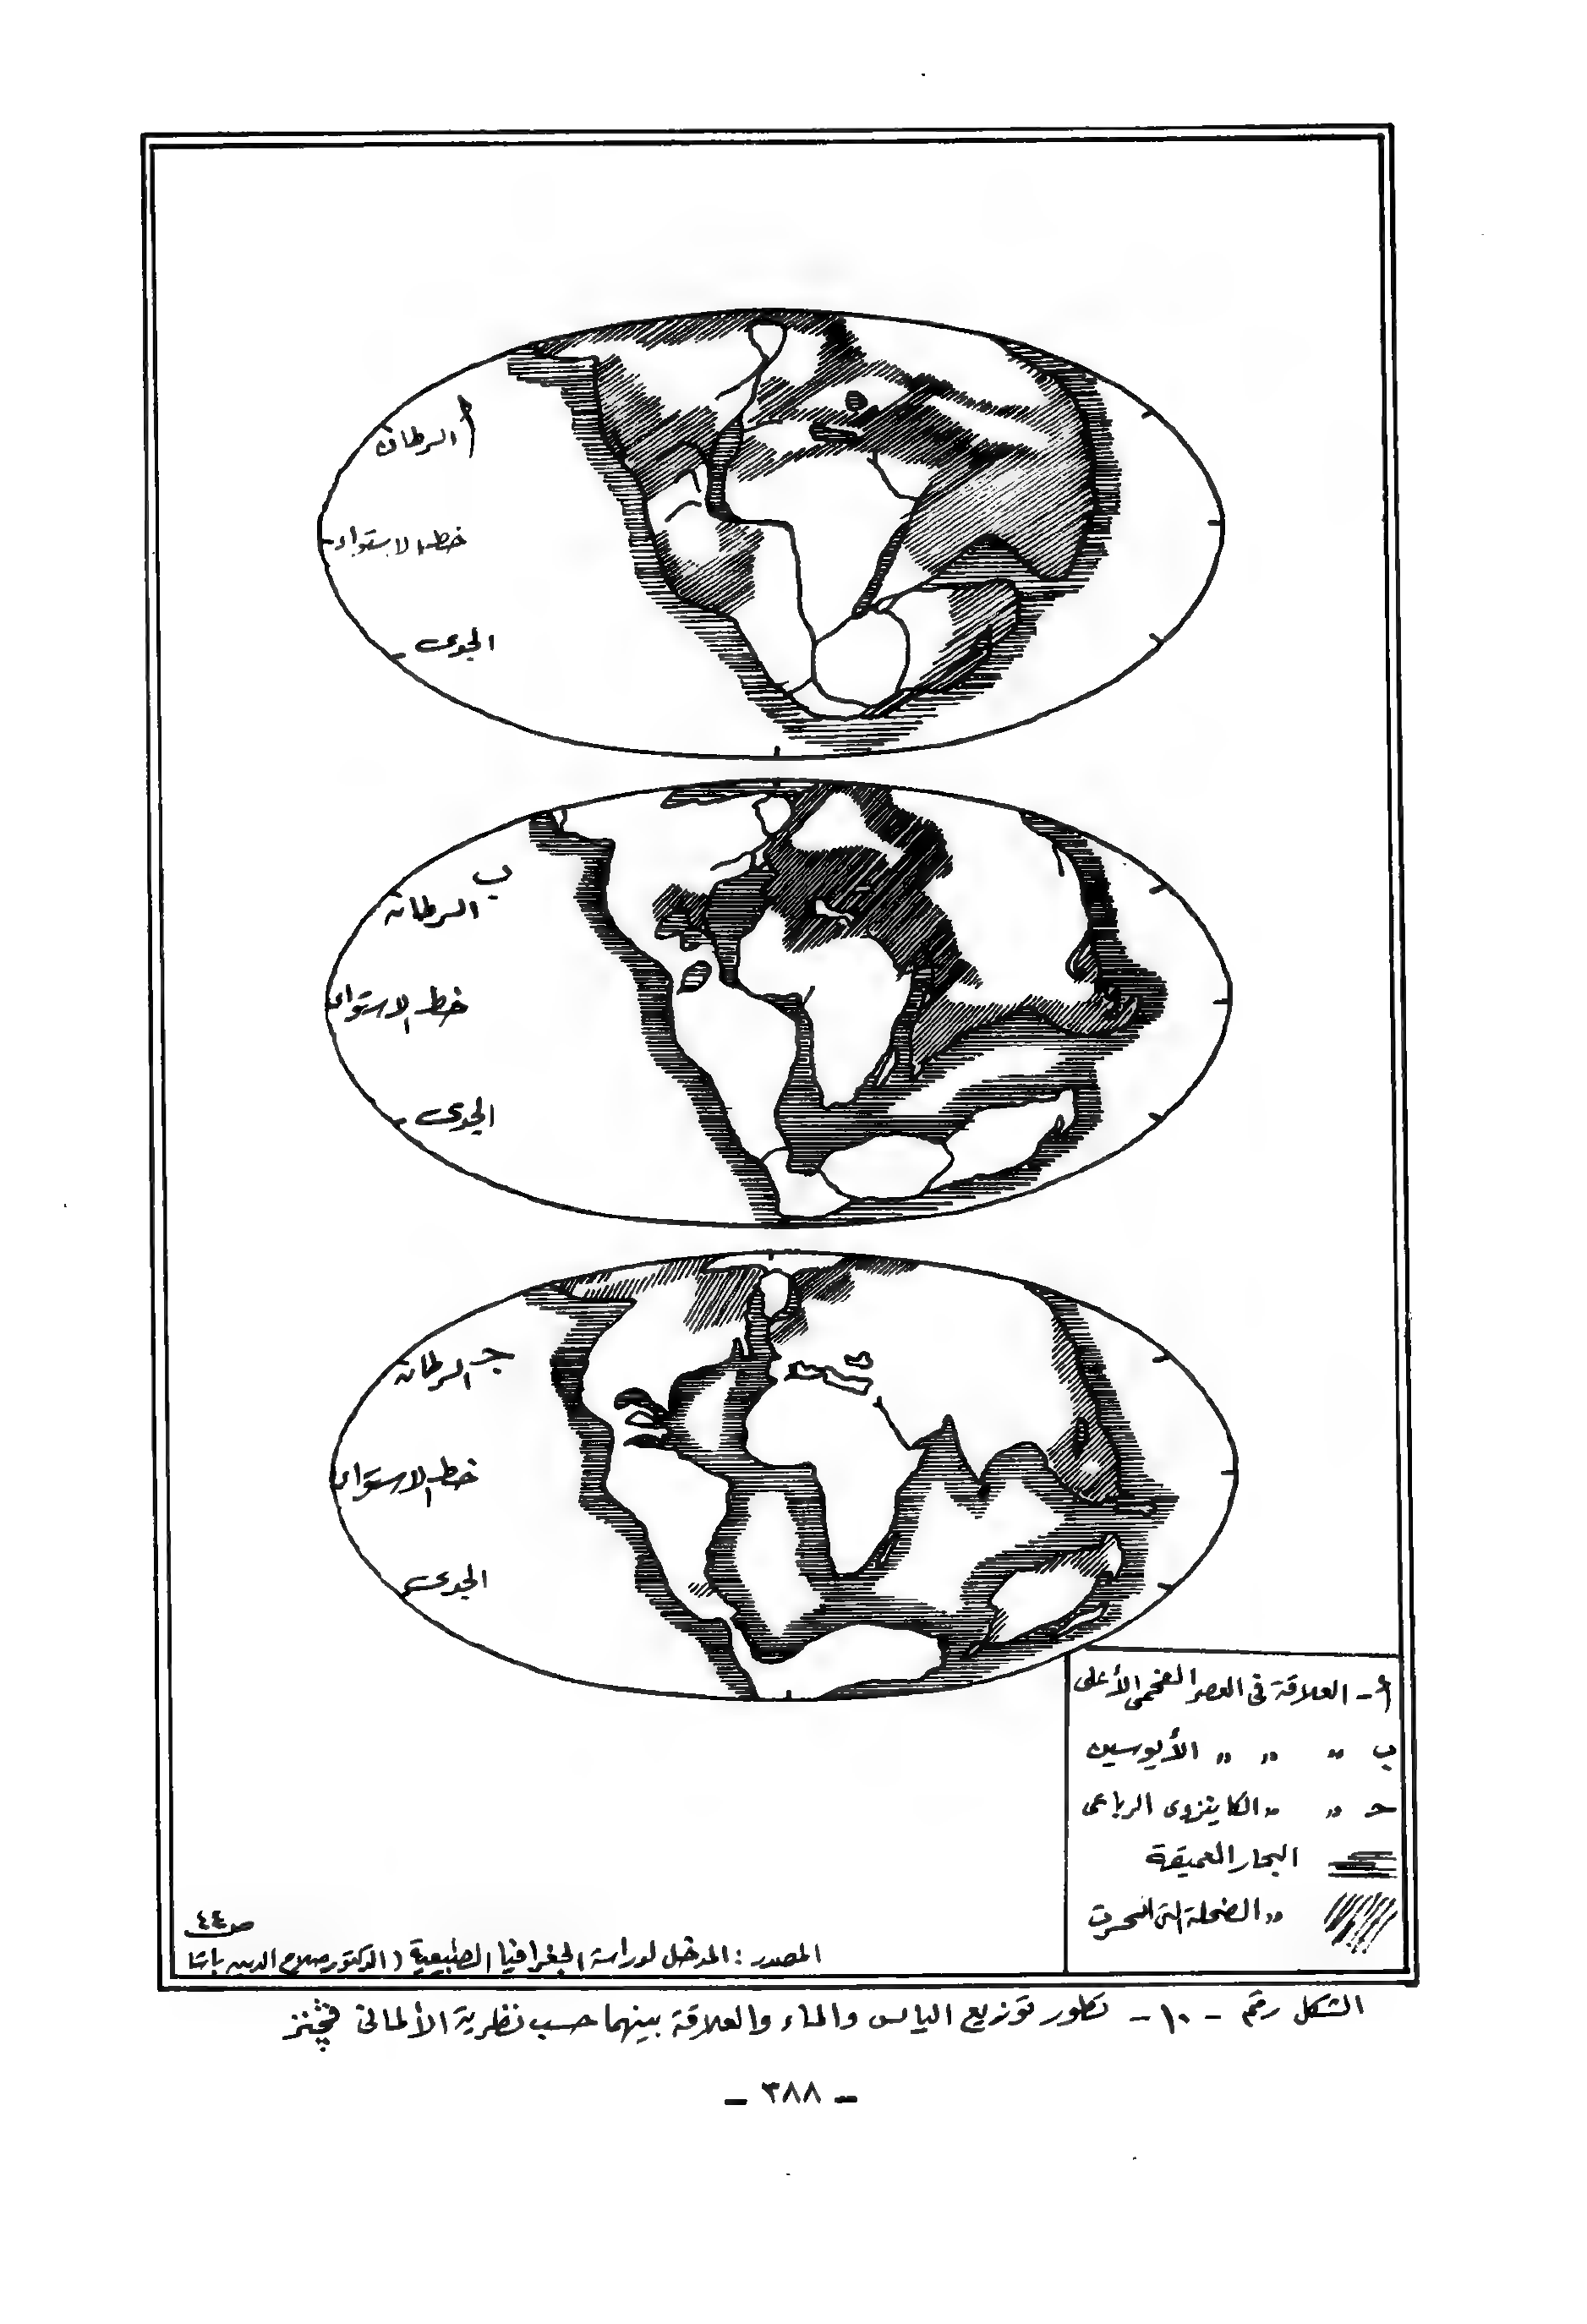 أ
السرطان
خط الاستواء
الجدى
ب
السرطان
خط الاستواء
الجدى
جـ
السرطان
خط الاستواء
الجدى
أ - العلاقة فى العصر الفحمى الأعلى
ب " " " الأيوسين
حـ " " الكاينزوى الرباعى
البحار العميقة
" الضحلة التى انحسرت
ص ٤٤
المصدر : المدخل لدراسة الجغرافيا الطبيعية ( الدكتور صلاح الدين باشا
الشكل رقم - ١٠ - تطور توزيع اليابس والماء والعلاقة بينهما حسب نظرية الألمانى فجنز
- ٣٨٨ -